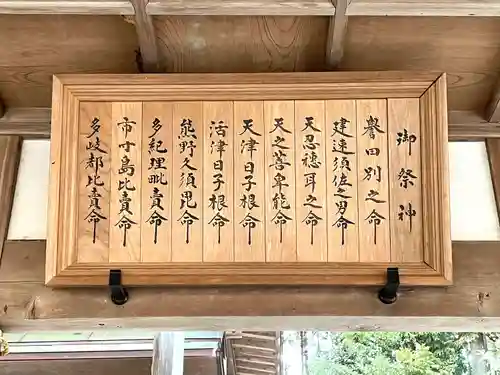 御祭神
誉田別之命
建速須佐之男命
天忍穂耳之命
天之菩卑能命
天津日子根命
活津日子根命
熊野久須毘命
多紀理毗賣命
市寸島比賣命
多岐都比賣命